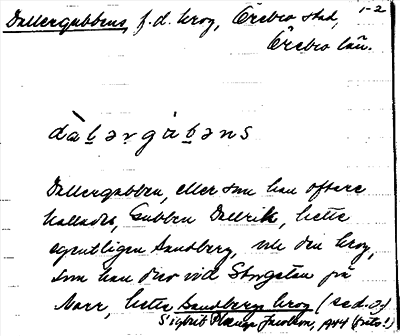 1-2
Dallergubbens, f.d. krog, Örebro stad,
Örebro län.
dàḻərgu̇ḇəns
Dallergubben, eller som han oftare
kallades, Gubben Dallrik, hette
egentligen Sandberg, och den krog,
som han drev vid Storgatan på
Norr, hette Sandbergs krog (se d.o.)
Sigbrit Plænge Jacobson, 1944 (frtr.!)